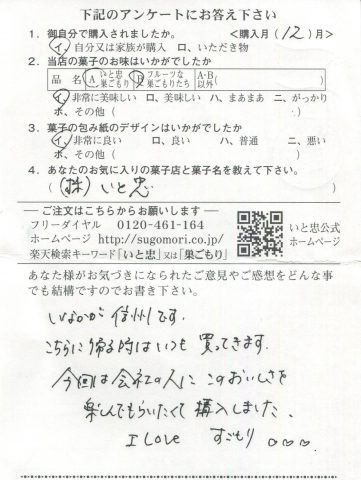 下記のアンケートにお答え下さい
1. 御自分で購入されましたか。 <購入月(12)月>
イ、自分又は家族が購入 ロ、いただき物
2. 当店の菓子のお味はいかがでしたか
品名 A いと忠巣ごもり B フルーツな巣ごもりたち A・B以外( )
イ、非常に美味しい ロ、美味しい ハ、まあまあ ニ、がっかり
ホ、その他( )
3. 菓子の包み紙のデザインはいかがでしたか
イ、非常に良い ロ、良い ハ、普通 ニ、悪い
ホ、その他( )
4. あなたのお気に入りの菓子店と菓子名を教えて下さい。
( (株)いと忠. )
―ご注文はこちらからお願いします―
フリーダイヤル 0120-461-164
ホームページ http://sugomori.co.jp/
楽天検索キーワード「いと忠」又は「巣ごもり」
いと忠公式
ホームページ
あなた様がお気づきになられたご意見やご感想をどんな事
でも結構ですのでお書き下さい。
いなかが信州です.
こちらに帰る時はいつも買ってきます.
今回は会社の人にこのおいしさを
楽しんでもらいたくて購入しました.
I Love すごもり ♡♡♡